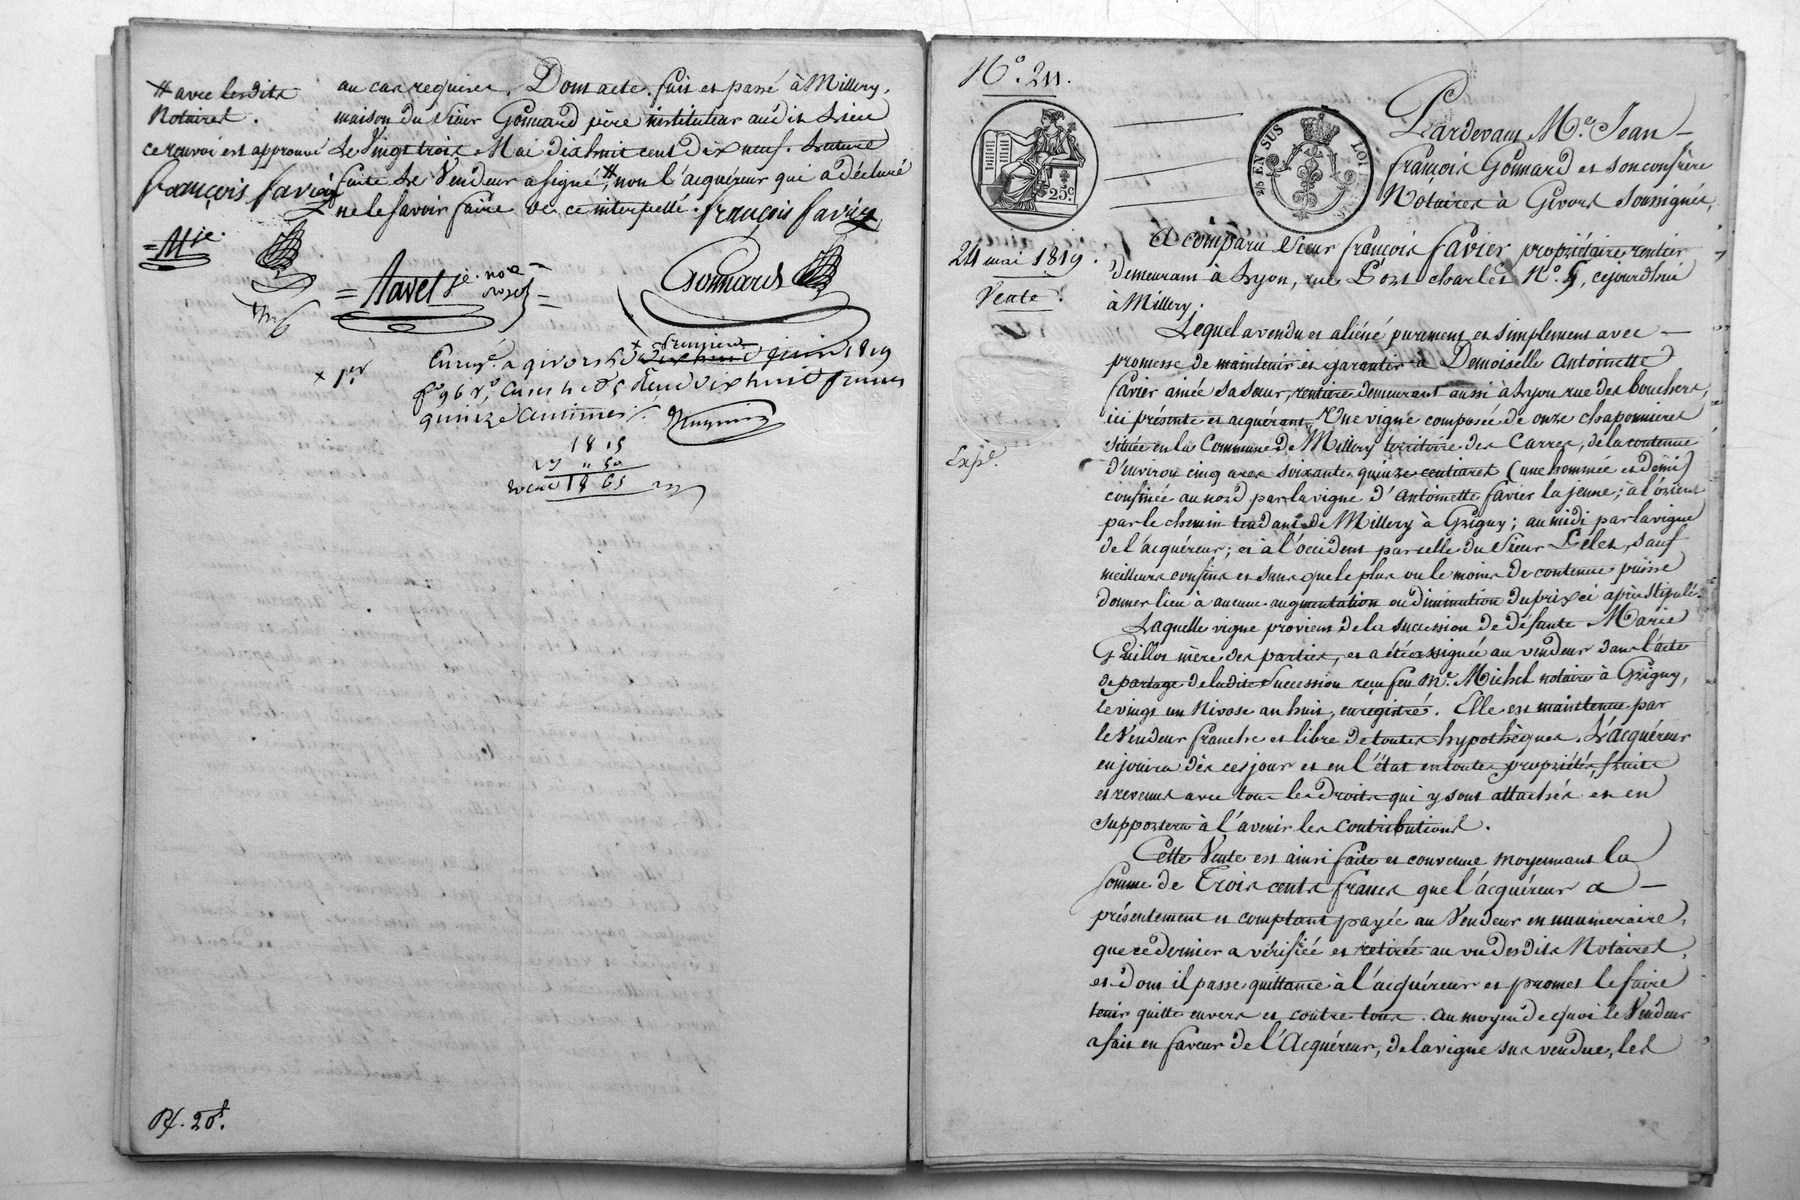 # avec lesdits
Notaires.
ce renvoi est approuvé
françois favier
au cas requises. Dont acte. fait et passé à Millery,
maison du Sieur Gonnard père instituteur audit Lieu
Le Vingt trois Mai dix huit cent dix neuf. Lecture
faite Le Vendeur a signé, # non l'acquéreur qui a déclaré
ne le savoir faire de ce interpellé. françois favier
= Mie.
= Navel je. nore =
Gonnard
Enregé. a givors le premier juin 1819
x 1er
fo 96 ro, cases 4 et 5 Reçu dix huit francs
quinze centimes.
18 15
" 50
18 65
Rf. 20f.
No. 211.
25 c.
25 EN SUS
LOI
24 mai 1819.
Vente.
Expé.
Pardevant Me. Jean
françois Gonnard et son confrère
Notaires à Givors soussignés,
A comparu Sieur françois favier propriétaire rentier
demeurant à Lyon, rue Port Charlet No. 5, cejourdhui
à Millery;
Lequel a vendu et aliéné purement et simplement avec
promesse de maintenir et garantir à Demoiselle Antoinette
favier ainée sa sœur, rentière demeurant aussi à Lyon rue des bouchers,
ici présente et acquérant, Une vigne composée de onze chaponnières
située en la Commune de Millery territoire des Carres, de la contenue
d'environ cinq ares soixante quinze centiares (une hommée et demi)
confinée au nord par la vigne d'Antoinette favier la jeune; à l'orient
par le chemin tendant de Millery à Grigny; au midi par la vigne
de l'acquéreur; et à l'occident par celle du Sieur Pélet, sauf
meilleurs confins et sans que le plus ou le moins de contenue puisse
donner lieu à aucune augmentation ou diminution du prix ci après stipulé.
Laquelle vigne provient de la succession de défunte Marie
Guillot mère des parties, et a été assignée au vendeur dans l'acte
de partage de ladite Succession reçu feu Me. Michel notaire à Grigny,
le vingt un Nivose an huit, enregistré. Elle est maintenue par
le Vendeur franche et libre de toutes hypothèques. L'acquéreur
en jouira dès ces jour et en l'état en toutes propriétés, fruits
et revenus avec tous les droits qui y sont attachés et en
supportera à l'avenir les contributions.
Cette Vente est ainsi faite et convenue moyennant la
somme de Trois cents francs que l'acquéreur a
présentement et comptant payée au Vendeur en numeraire,
que ce dernier a vérifiée et retirée au vu desdits Notaires,
et dont il passe quittance à l'acquéreur et promet le faire
tenir quitte envers et contre tous. Au moyen de quoi le Vendeur
a fait en faveur de l'Acquéreur, de la vigne sus vendue, les